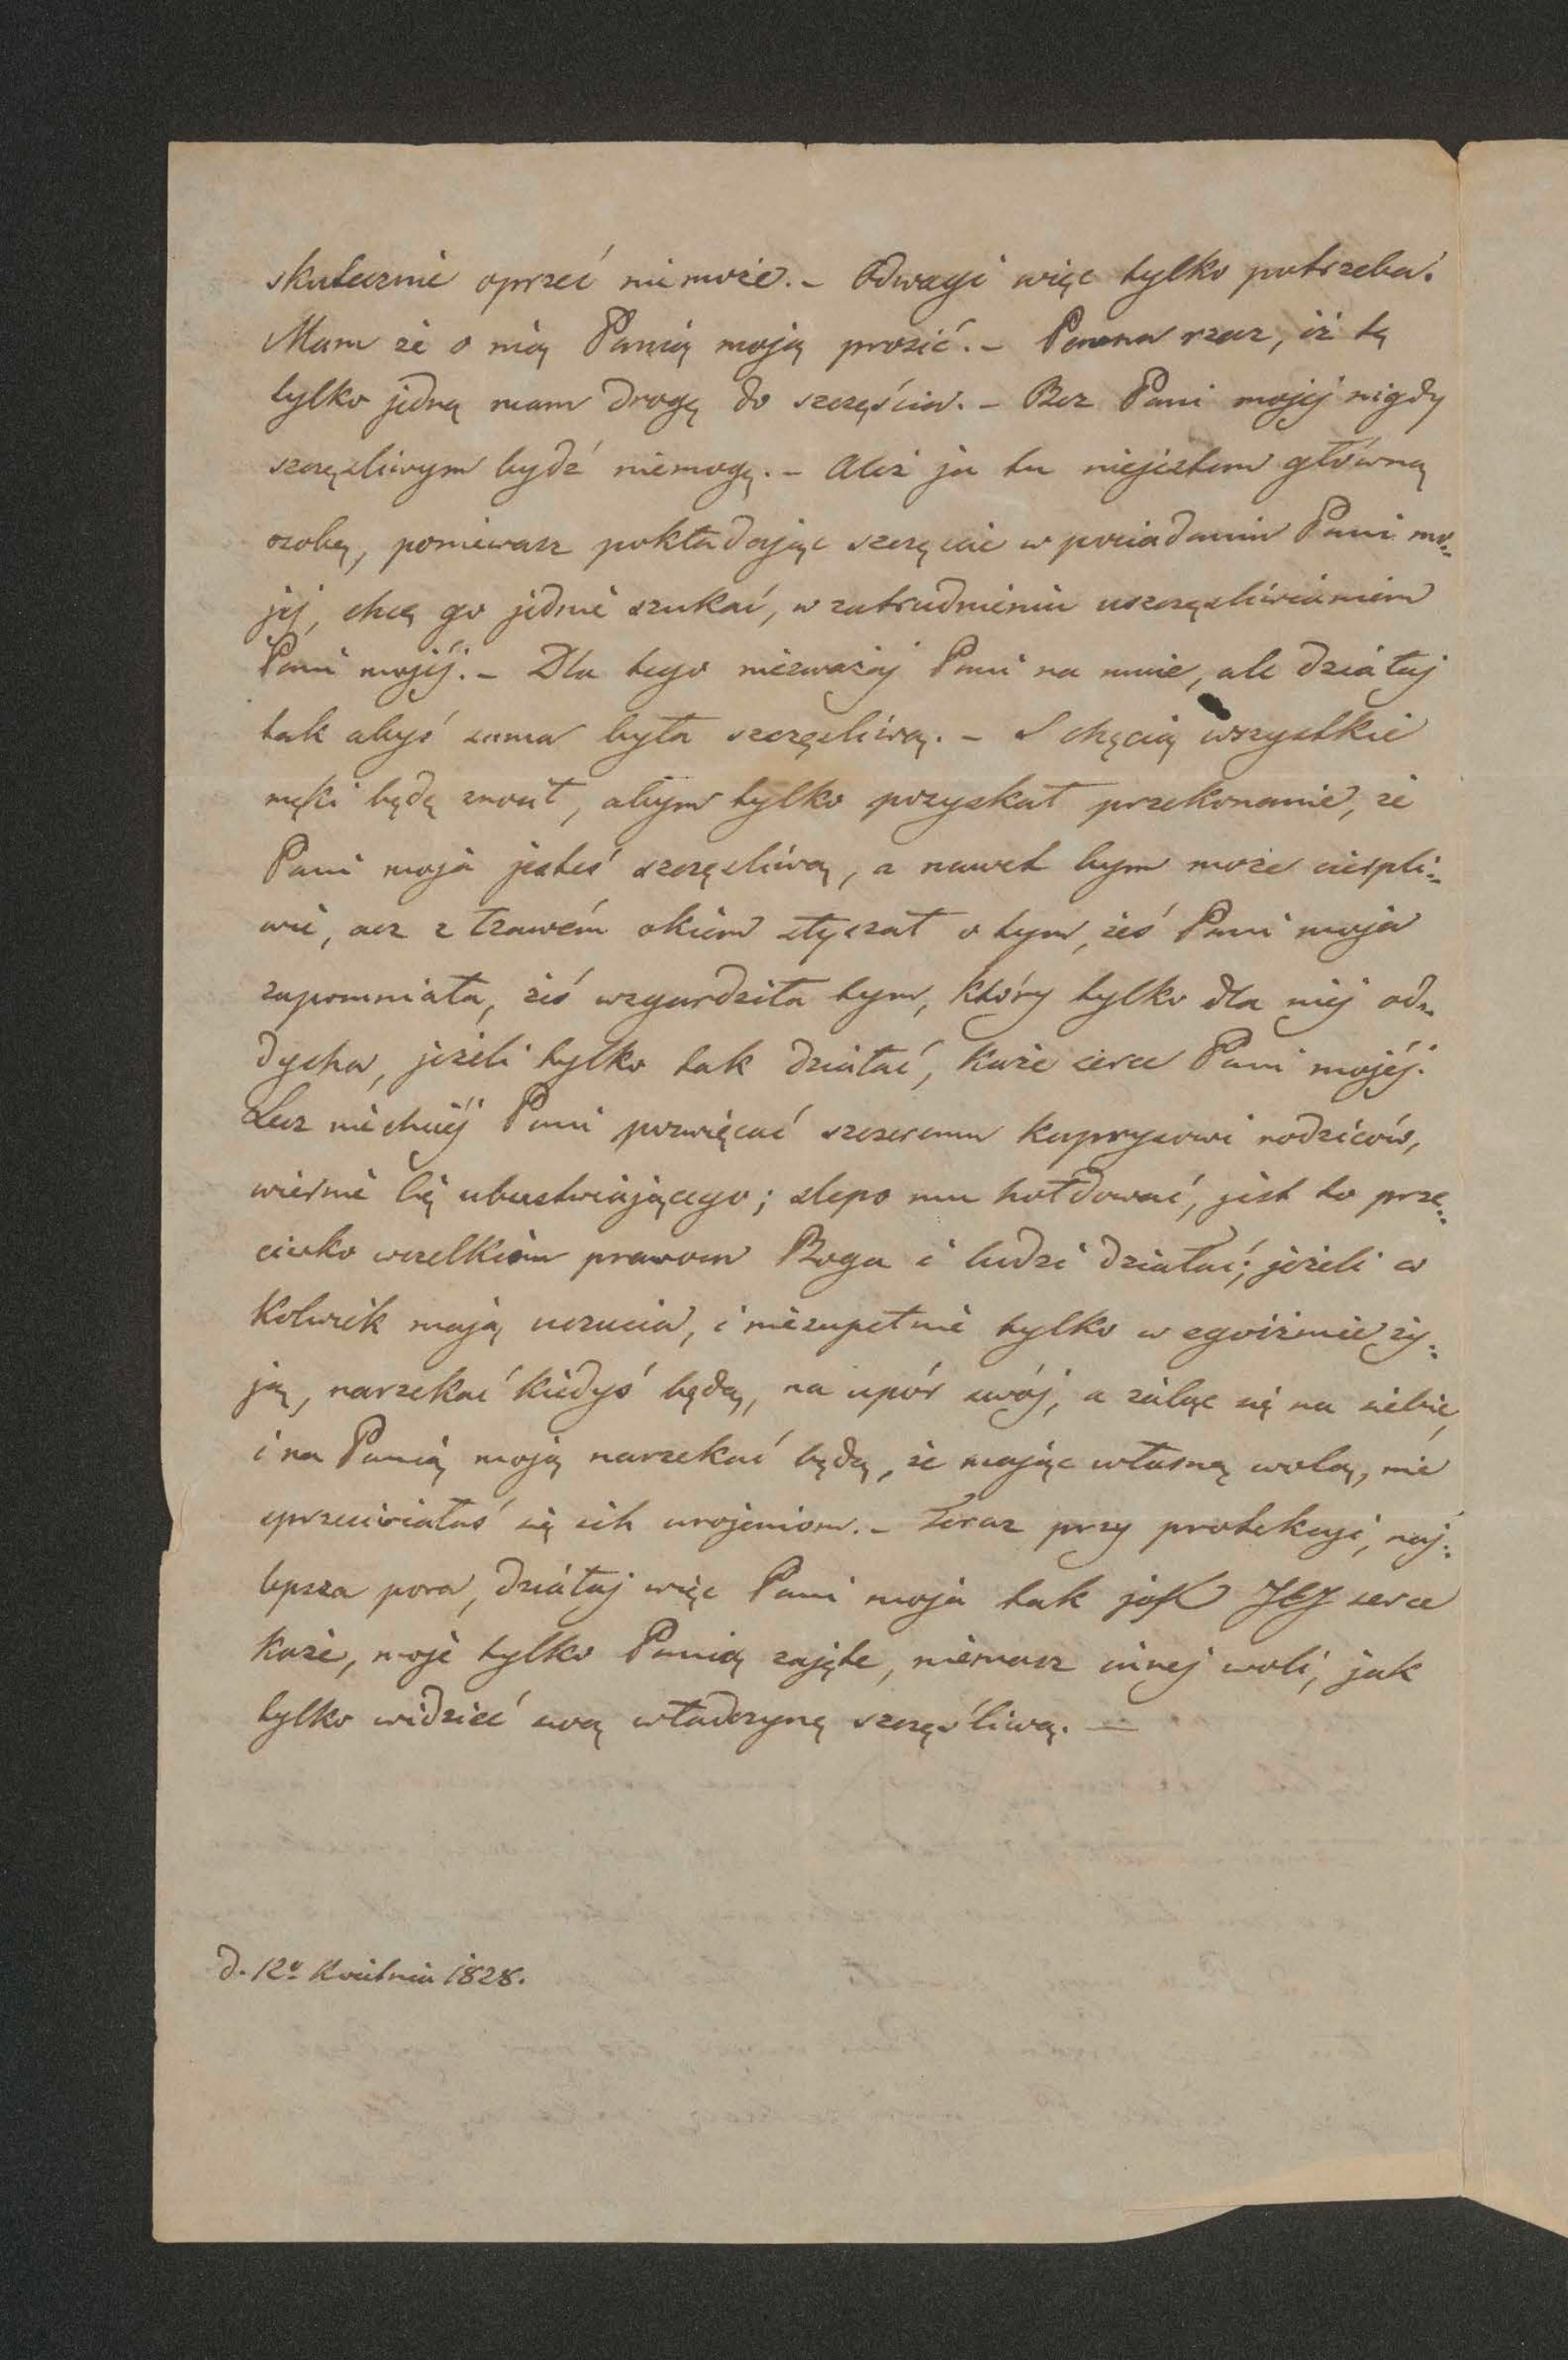 skutecznie oprzeć nie może. – Odwagi więc tylko potrzeba.
Mam że o nią Panią moją prosić. – Pewna rzecz, iż tę
tylko jedną mam drogę do szczęścia. – Bez Pani mojej nigdy
szczęzliwym bydź niemogę. – Ależ ja tu niejestem główną
osobą, poniewasz pokładając szczęcie w posiadaniu Pani mo=
jej, chcę go jednie szukać, w zatrudnieniu uszczęzliwianiem
Pani mojéj. – Dla tego niezważaj Pani na mnie, ale działaj
tak abyś sama była szczęzliwą. – S chęcią wszystkie
męki będę znosił, abym tylko pozyskał przekonanie, że
Pani moja jesteś szczęzliwą, a nawet bym może cierpli=
wie, acz z łzawém okiem słyszał o tym, żeś Pani moja
zapomniała, żeś wzgardziła tym, który tylko dla niej od=
dycha, jeżeli tylko tak działać, każe serce Pani mojéj.
Lecz niechciéj Pani poswięcać szczeremu kaprysowi rodziców,
wiernie Cię ubustwiającego; slepo mu hołdować, jest to prze=
ciwko wszelkim prawom Boga i ludzi działać; jeżeli co
kolwiek mają uczucia, i niezupełnie tylko w egoiźmie ży=
ją, narzekać kiedyś będą, na upór swój, a żaląc się na siebie,
i na Panią moją narzekać będą, że mając własną wolą, nie
sprzeciwiałaś się ich urojeniom. – Teraz przy protekcyi, naj=
lepsza pora, działaj więc Pani moja tak jak JEJ serce
każe, moje tylko Panią zajęte, niemasz innej woli, jak
tylko widzieć swą władczynę szczęśliwą. —
d. 12º Kwietnia 1828.